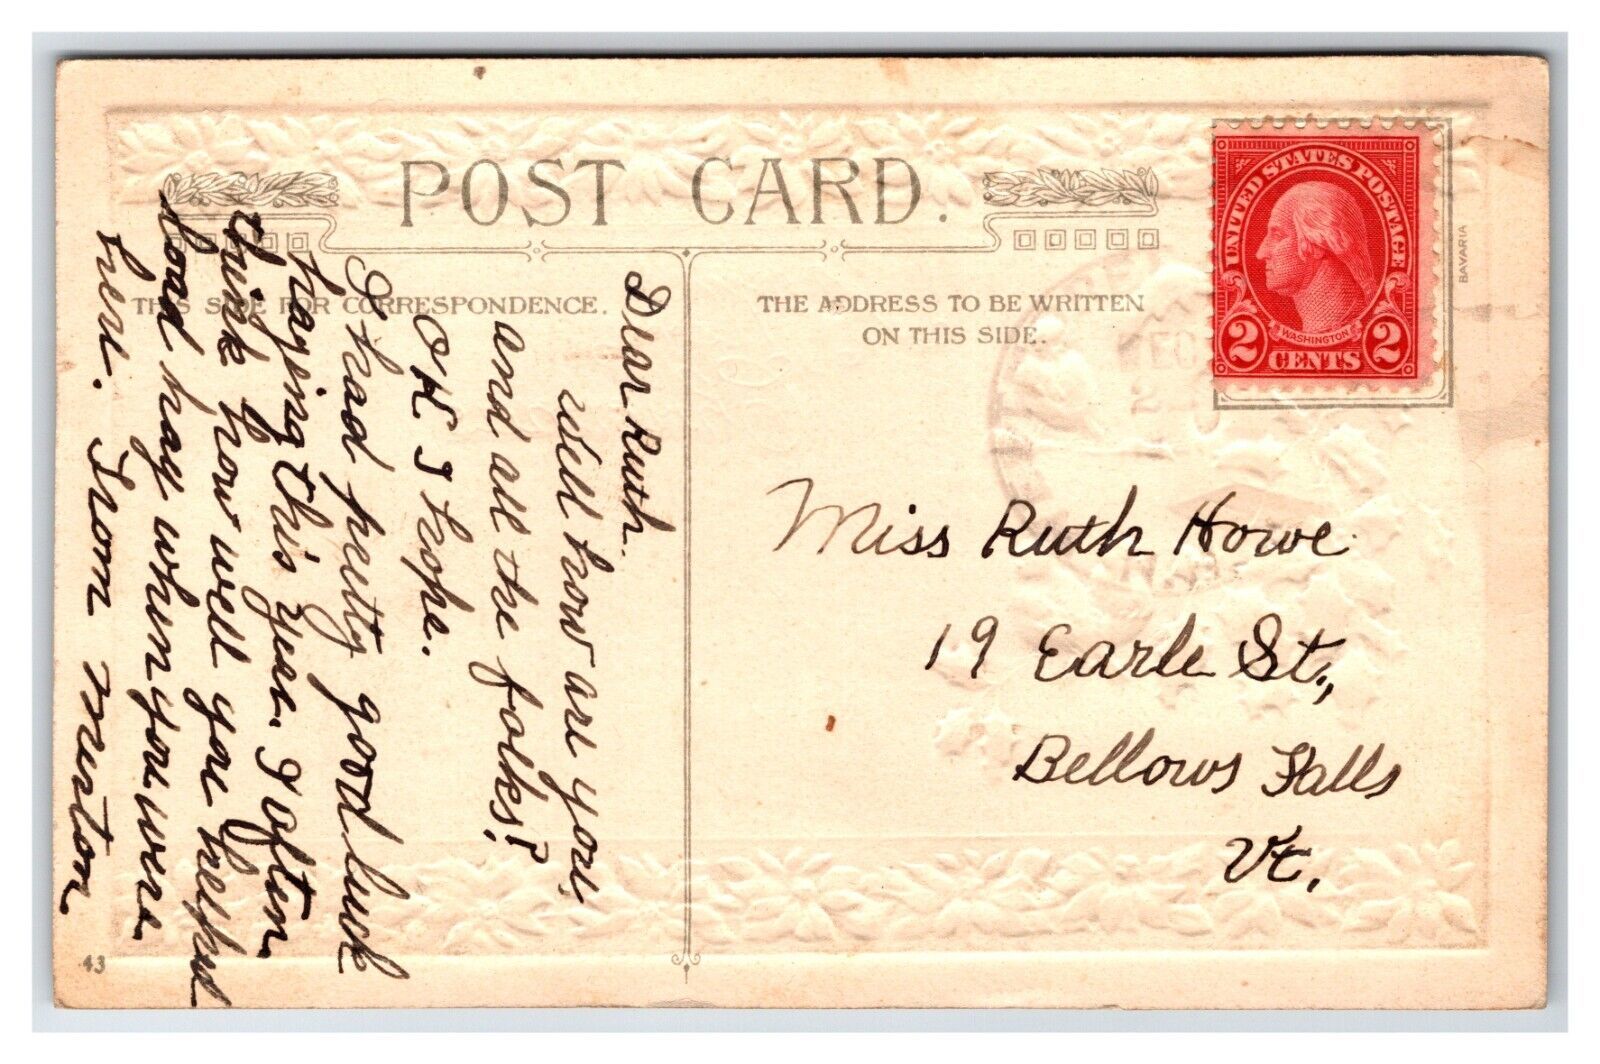 POST CARD.
THIS SIDE FOR CORRESPONDENCE.
THE ADDRESS TO BE WRITTEN
ON THIS SIDE.
UNITED STATES POSTAGE
WASHINGTON
2 CENTS 2
BAVARIA
DEC
2
Dear Ruth.
Well how are you
and all the folks?
OK I hope.
I had pretty good luck
haying this year. I often
think how well you helped
load hay when you were
here. From Merton
Miss Ruth Howe
19 Earle St.,
Bellows Falls
Vt.
43